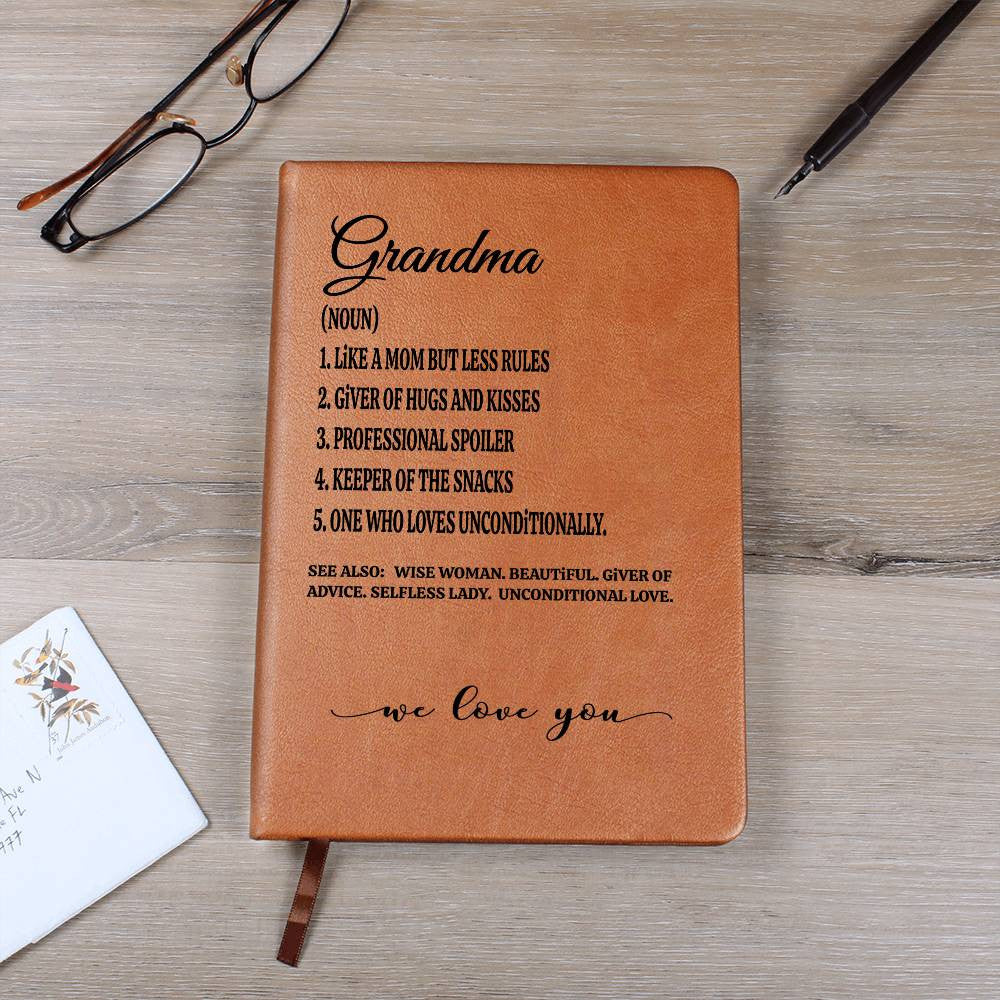 Grandma
(NOUN)
1. LiKE A MOM BUT LESS RULES
2. GiVER OF HUGS AND KISSES
3. PROFESSIONAL SPOILER
4. KEEPER OF THE SNACKS
5. ONE WHO LOVES UNCONDiTIONALLY.
SEE ALSO: WISE WOMAN. BEAUTiFUL. GiVER OF
ADVICE. SELFLESS LADY. UNCONDITIONAL LOVE.
we love you
37
John James Audubon
Ave N
FL
977